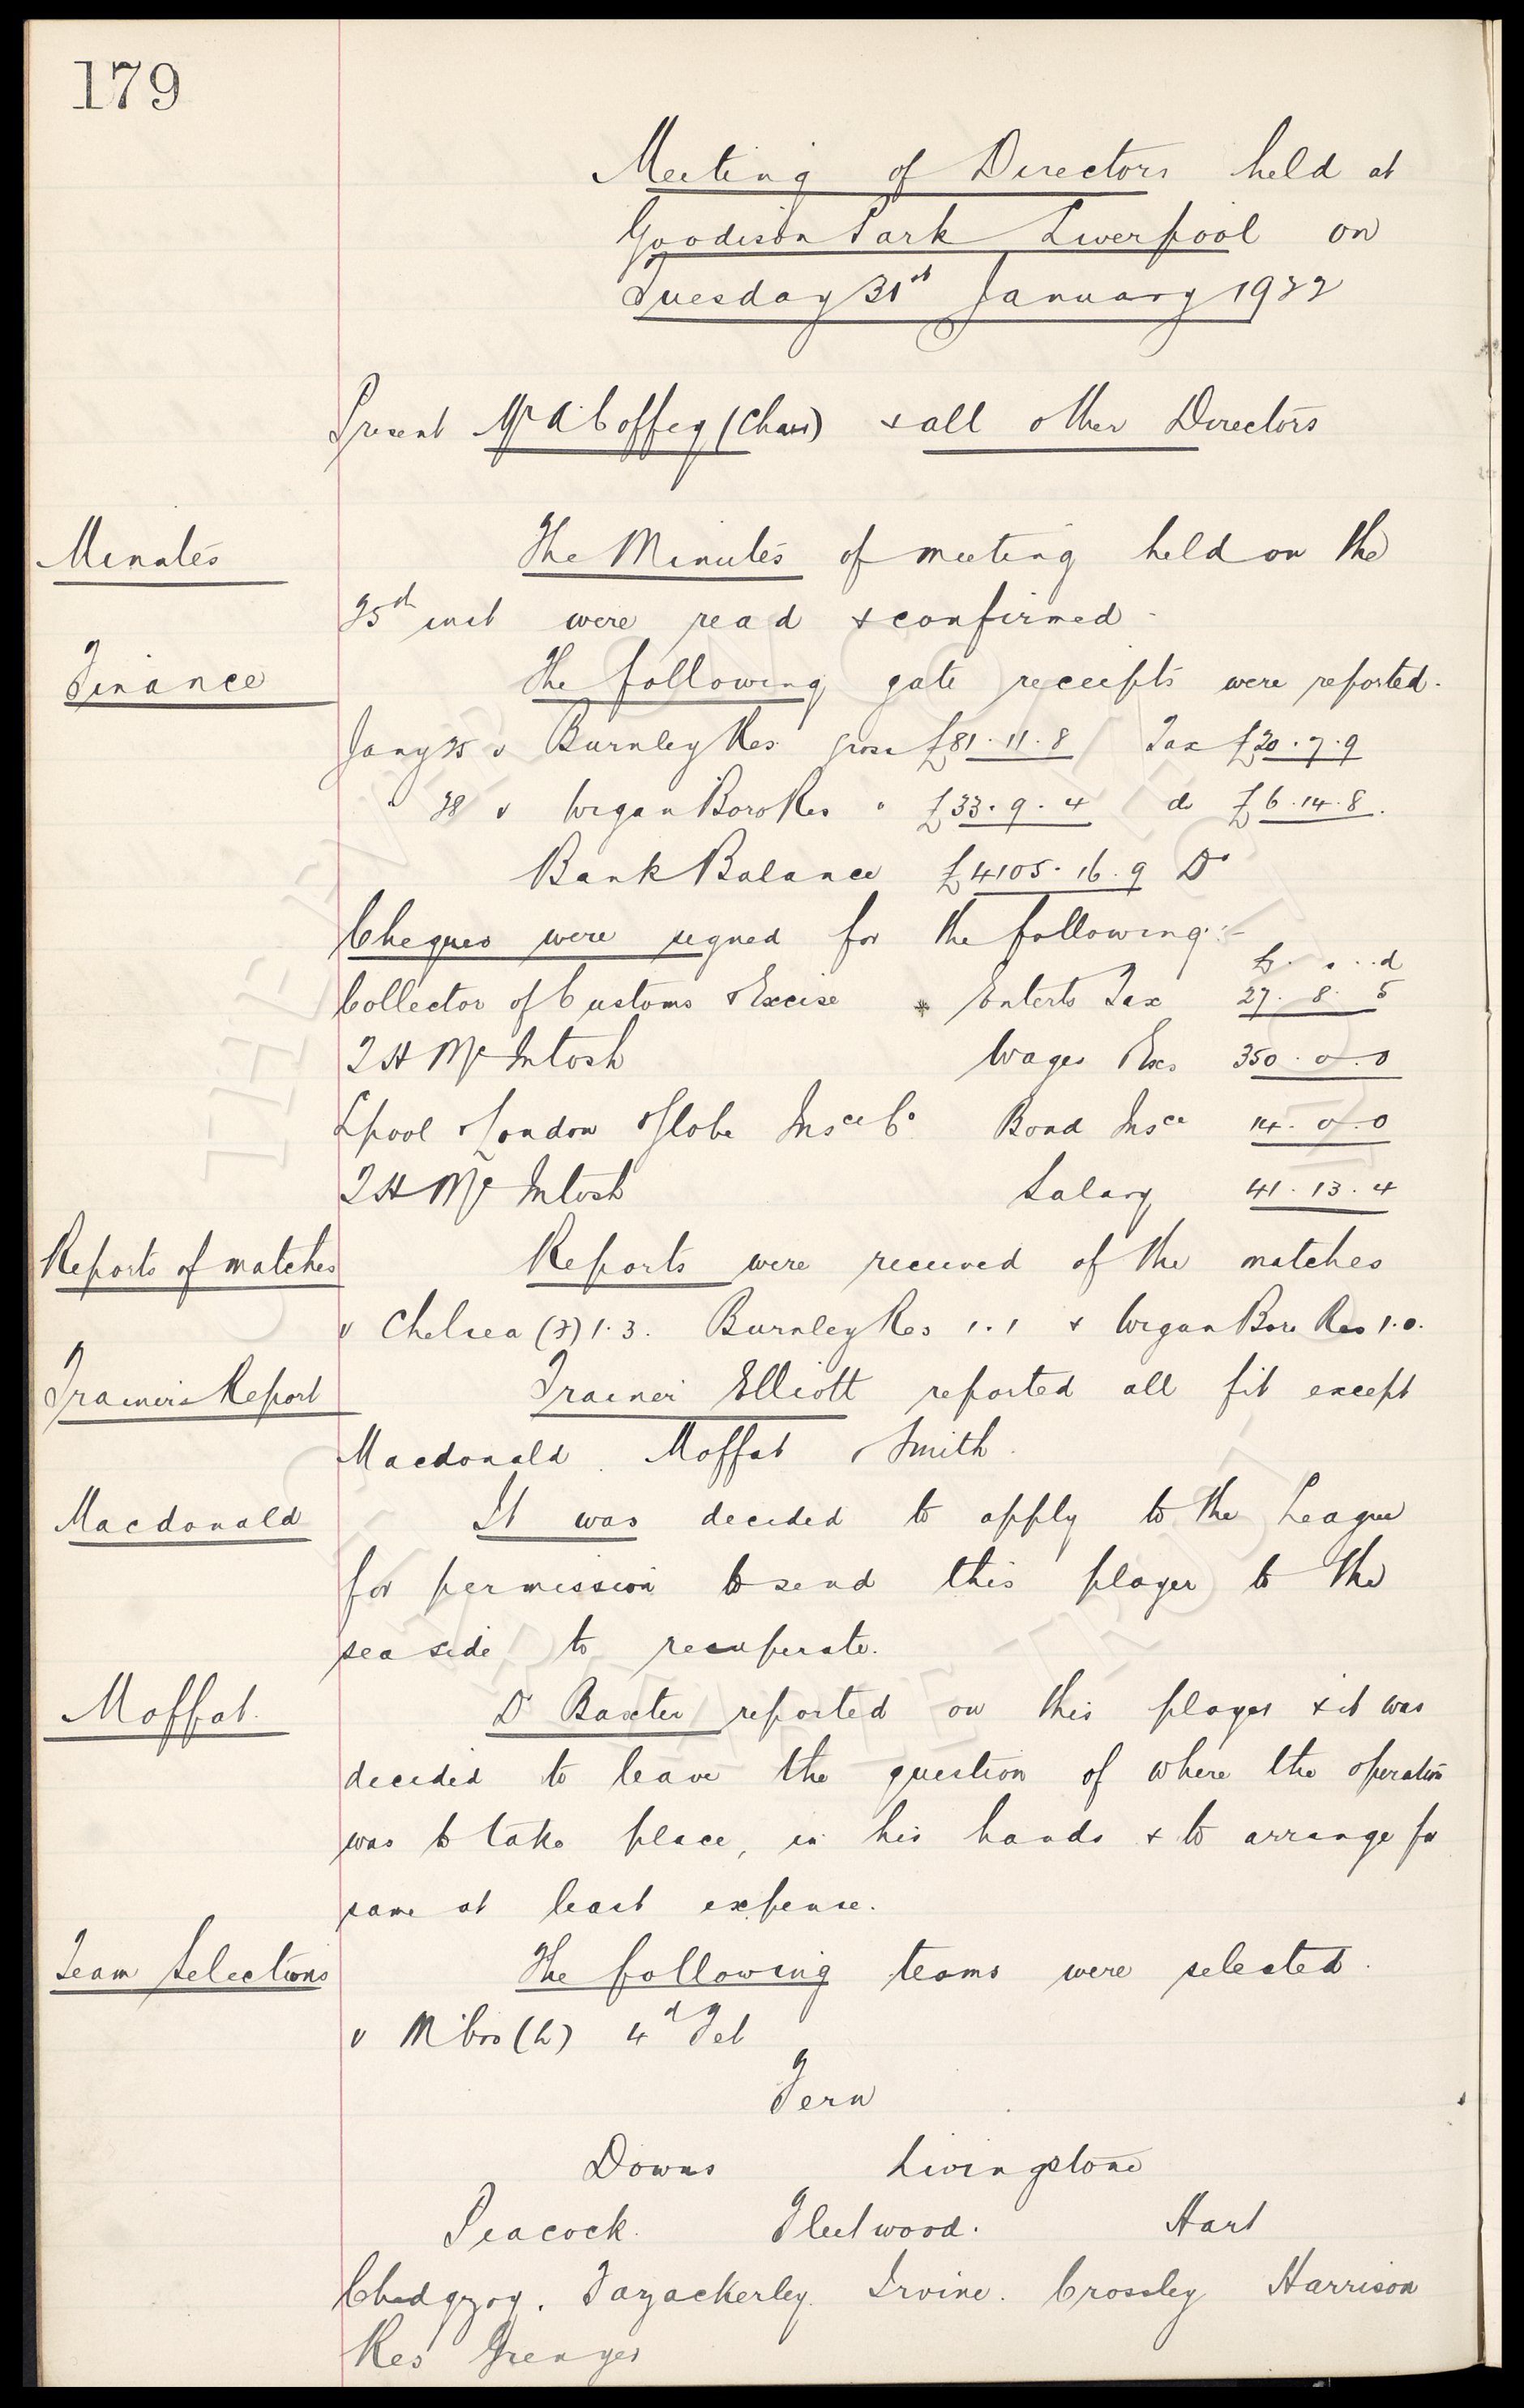 179
Meeting of Directors held at
Goodison Park Liverpool on
Tuesday 31st January 1922
Present Mr A Coffey (Chair) & all other Directors
Minutes
The Minutes of meeting held on the
25th inst were read & confirmed
Finance
The following gate receipts were reported.
Jany 25 v Burnley Res gross £81.11.8 Tax £20.7.9
" 28 v Wigan Boro Res " £33.9.4 do £6.14.8.
Bank Balance £4105.16.9 Dr
Cheques were signed for the following:-
£ s d
Collector of Customs & Excise Enterts Tax 27. 8. 5
T H McIntosh Wages & Exs 350.0.0
Lpool & London & Globe Insce Co Bond Insce 14.0.0
T H McIntosh Salary 41.13.4
Reports of matches
Reports were received of the matches
v Chelsea (a) 1.3. Burnley Res 1.1 & Wigan Boro Res 1.0.
Trainers Report
Trainer Elliott reported all fit except
Macdonald. Moffat & Smith.
Macdonald
It was decided to apply to the League
for permission to send this player to the
sea side to recuperate.
Moffat.
Dr Baxter reported on this player & it was
decided to leave the question of where the operation
was to take place, in his hands & to arrange for
same at least expense.
Team Selections
The following teams were selected.
v M'bro (h) 4th Feb
Fern
Downs Livingstone
Peacock. Fleetwood. Hart
Chedgzoy. Fazackerley. Irvine. Crossley Harrison
Res Grenyer